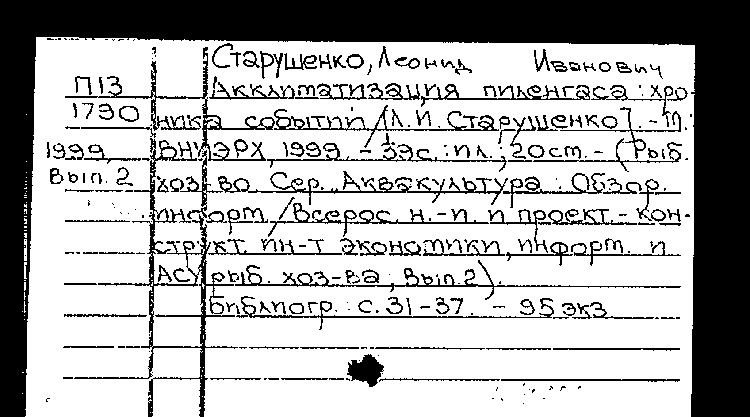 Старушенко, Леонид Иванович
П13 Акклиматизация пиленгаса : хро-
1790 ника событий / [Л.И. Старушенко]. - М.:
1999 ВНИЭРХ, 1999. - 39с. : ил. ; 20см. - (Рыб.
Вып. 2 хоз-во. Сер. Аквакультура : Обзор.
информ. / Всерос. н.-и. и проект.-кон-
структ. ин-т экономики, информ. и
АСУ рыб. хоз-ва ; Вып.2).
Библиогр.: с. 31-37. - 95 экз